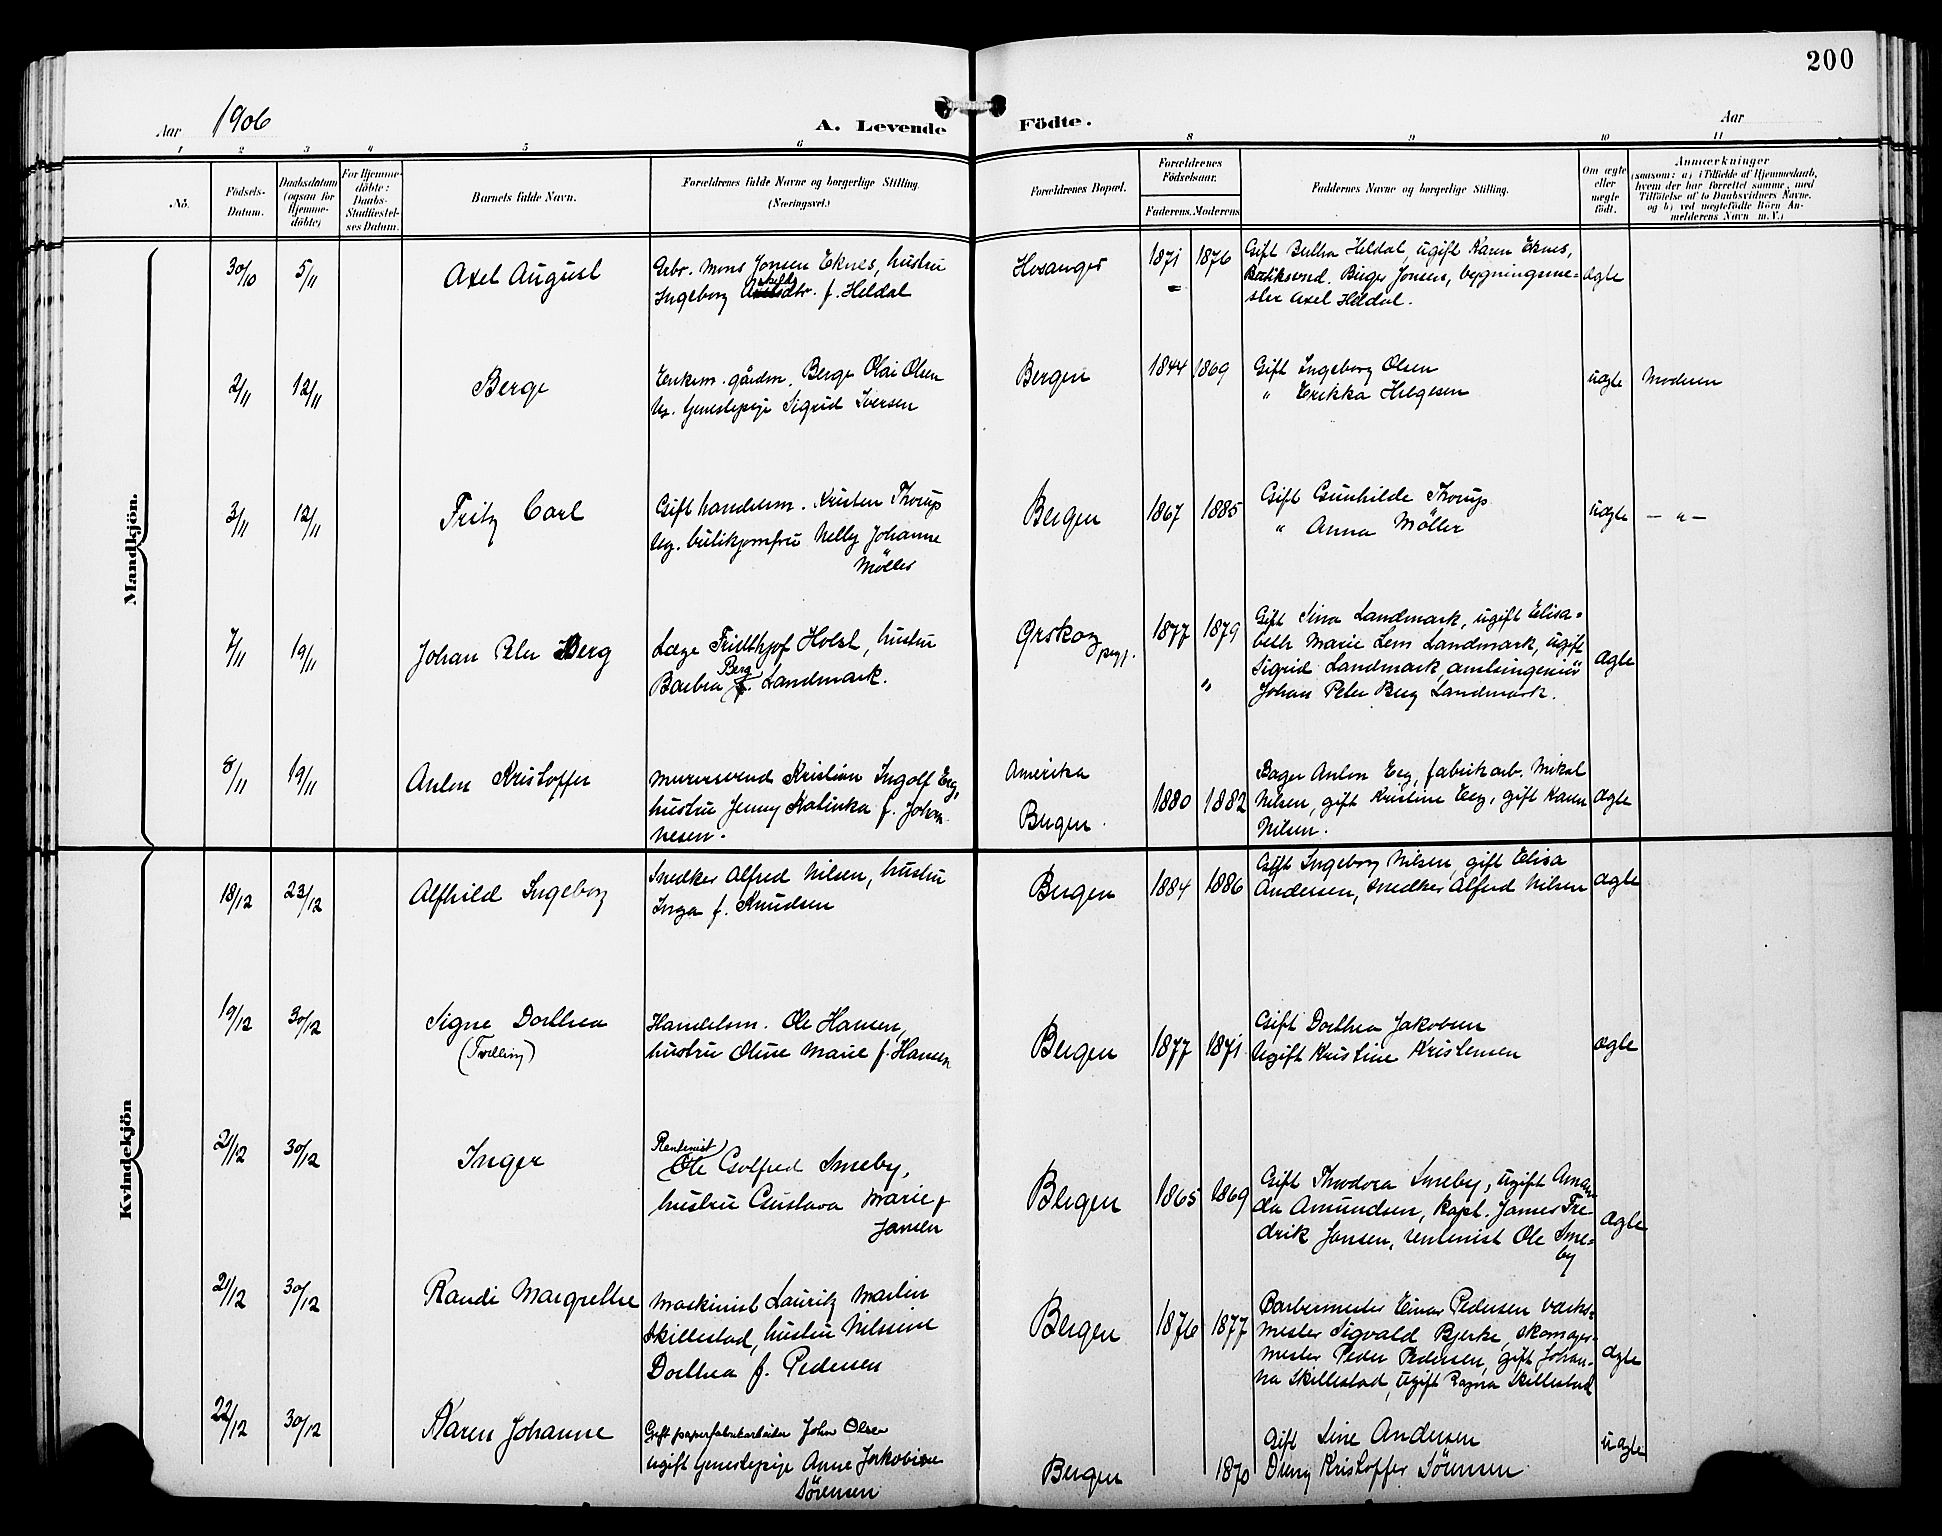 200
Aar 1906
A. Levende Födte.
Aar
1 2 3 4 5 6 8 9 10 11
No.
Födsels-Datum.
Daabsdatum (ogsaa for Hjemme-döbte)
For Hjemme-döbte: Daabs-Stadfæstel-ses Datum.
Barnets fulde Navn.
Forældrenes fulde Navne og borgerlige Stilling. (Næringsvei.)
Forældrenes Bopæl.
Forældrenes Födselsaar.
Faderens. Moderens.
Faddernes Navne og borgerlige Stilling.
Om ægte eller uægte födt.
Anmærkninger
(saasom: a) i Tilfælde af Hjemmedaab,
hvem der har forrettet samme, med
Tilföielse af to Daabsvidners Navne.
og b) ved uægtefödte Börn An-
melderens Navn m. V.)
Mandkjön.
30/10 5/11 Axel August
Gbr. Mons Jonsen Eknes, hustru
Ingeborg f. Heldal
Hosanger 1871 1876
Gift Bertha Heldal, ugift Karen Eknes,
Birger Jonsen, bygningsme-
ster Axel Heldal.
ægte
2/11 12/11 Berge
Enkem. gårdm. Berge Olai Olsen
Ug. tjenestepige Sigrid Iversen
Bergen 1844 1869
Gift Ingeborg Olsen
" Erikka Helgesen
uægte Moderen
3/11 12/11 Fritz Carl
Gift handelsm. Kristen Thorup
Ug. butikjomfru Nelly Johanne
Møller
Bergen 1867 1885
Gift Gunhilde Thorup
" Anna Møller
uægte — " —
7/11 19/11 Johan Peter Berg
Læge Fridthjof Holst, hustru
Barbra Berg f. Landmark.
Ørskog pgj. 1877 1879
"
Gift Sina Landmark, ugift Elisa=
beth Marie Lem Landmark, ugift
Sigrid Landmark, amtsingeniör
Johan Peter Berg Landmark.
ægte
8/11 19/11 Anton Kristoffer
Murersvend Kristian Ingolf Eeg,
hustru Jenny Kalinka f. Johan
nesen.
Amerika
Bergen. 1880 1882
Bager Anton Eeg, fabrikarb. Mikal
Nilsen, gift Kristine Eeg, gift Karen
Nilsen.
ægte
Kvindekjön
18/12 23/12 Alfhild Ingeborg
Snedker Alfred Nilsen, hustru
Inga f. Knudsen
Bergen 1884 1886
Gift Ingeborg Nilsen, gift Elisa
Andersen, Snedker Alfred Nilsen
ægte
19/12 30/12 Signe Dorthea
(Tvilling)
Handelsm. Ole Hansen,
hustru Oline Marie f. Hansen
Bergen 1877 1871
Gift Dorthea Jakobsen
Ugift Kristine Kristensen
ægte
21/12 30/12 Inger
Rentenist
Ole Golfred Smeby,
hustru Gustava Marie f
Jansen
Bergen 1865 1869
Gift Thodora Smeby, ugift Aman
da Amundsen, kapt. James Fre
drik Jansen, rentenist Ole Sme=
by
ægte
21/12 30/12 Randi Margrethe
Maskinist Lauritz Martin
Skillestad, hustru Nilsine
Dorthea f. Pedersen
Bergen 1876 1877
Barbermester Einar Pedersen værks=
mester Sigvald Bjerke, skomager=
mester Peder Pedersen, gift Johan-
na Skillestad, ugift Ragna Skillestad
ægte
22/12 30/12 Karen Johanne
Gift papirfabrikarbeider John Olsen
ugift tjenestepige Anne Jakobine
Sörensen
Bergen 1870
Gift Line Andersen
Dreng Kristoffer Sörensen
uægte